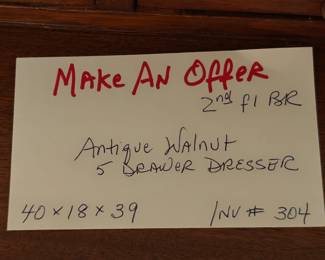 Make An Offer
2nd fl BR
Antique Walnut
5 Drawer Dresser
40 x 18 x 39
Inv # 304